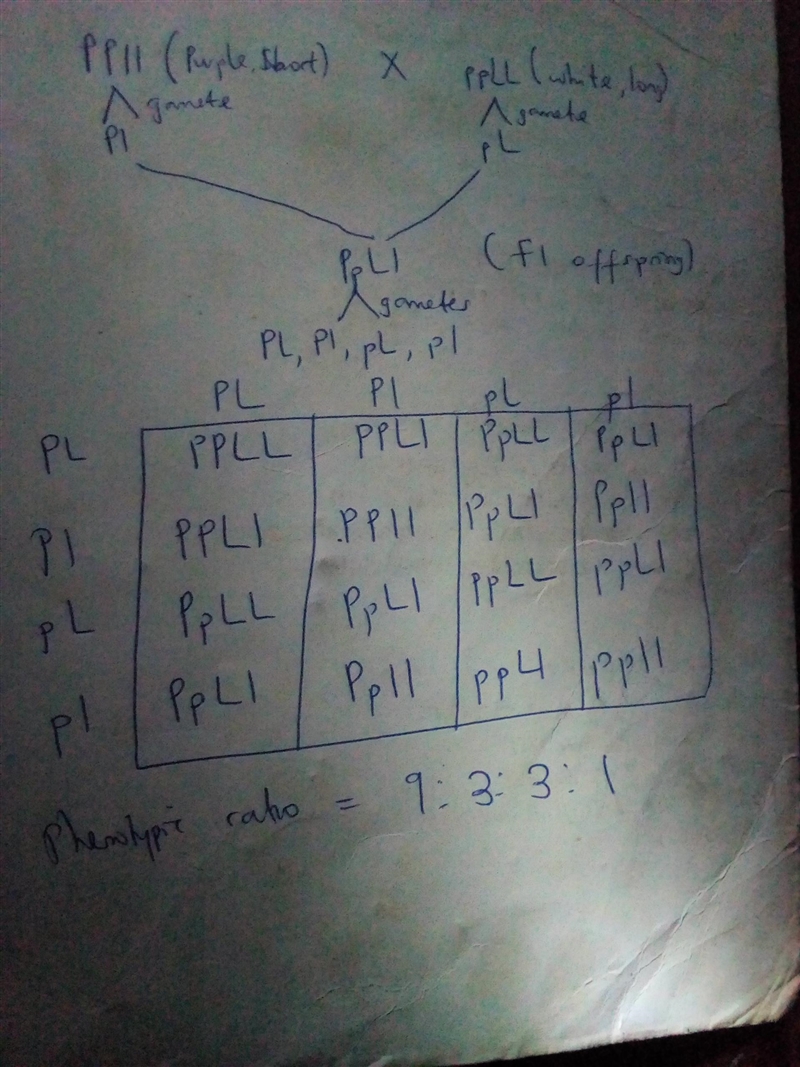 PPll (Purple, Short) X ppLL (white, long)
gamete gamete
Pl pL
PpLl (F1 offspring)
gametes
PL, Pl, pL, pl
PL Pl pL pl
PL PPLL PPLl PpLL PpLl
Pl PPLl PPll PpLl Ppll
pL PpLL PpLl ppLL ppLl
pl PpLl Ppll ppLl ppll
Phenotypic ratio = 9:3:3:1